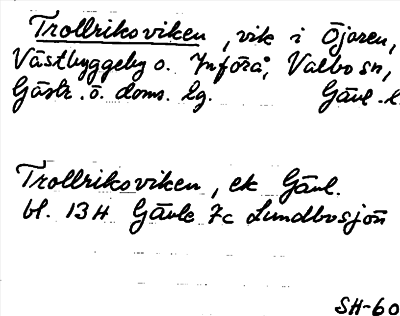 Trollriksviken, vik i Öjaren,
Västbyggeby o. Järå, Valbo sn,
Gästr. ö. doms. lg. Gävl. l.
Trollriksviken, ek Gävl.
bl. 13H Gävle 7c Lundbosjön
SH-60